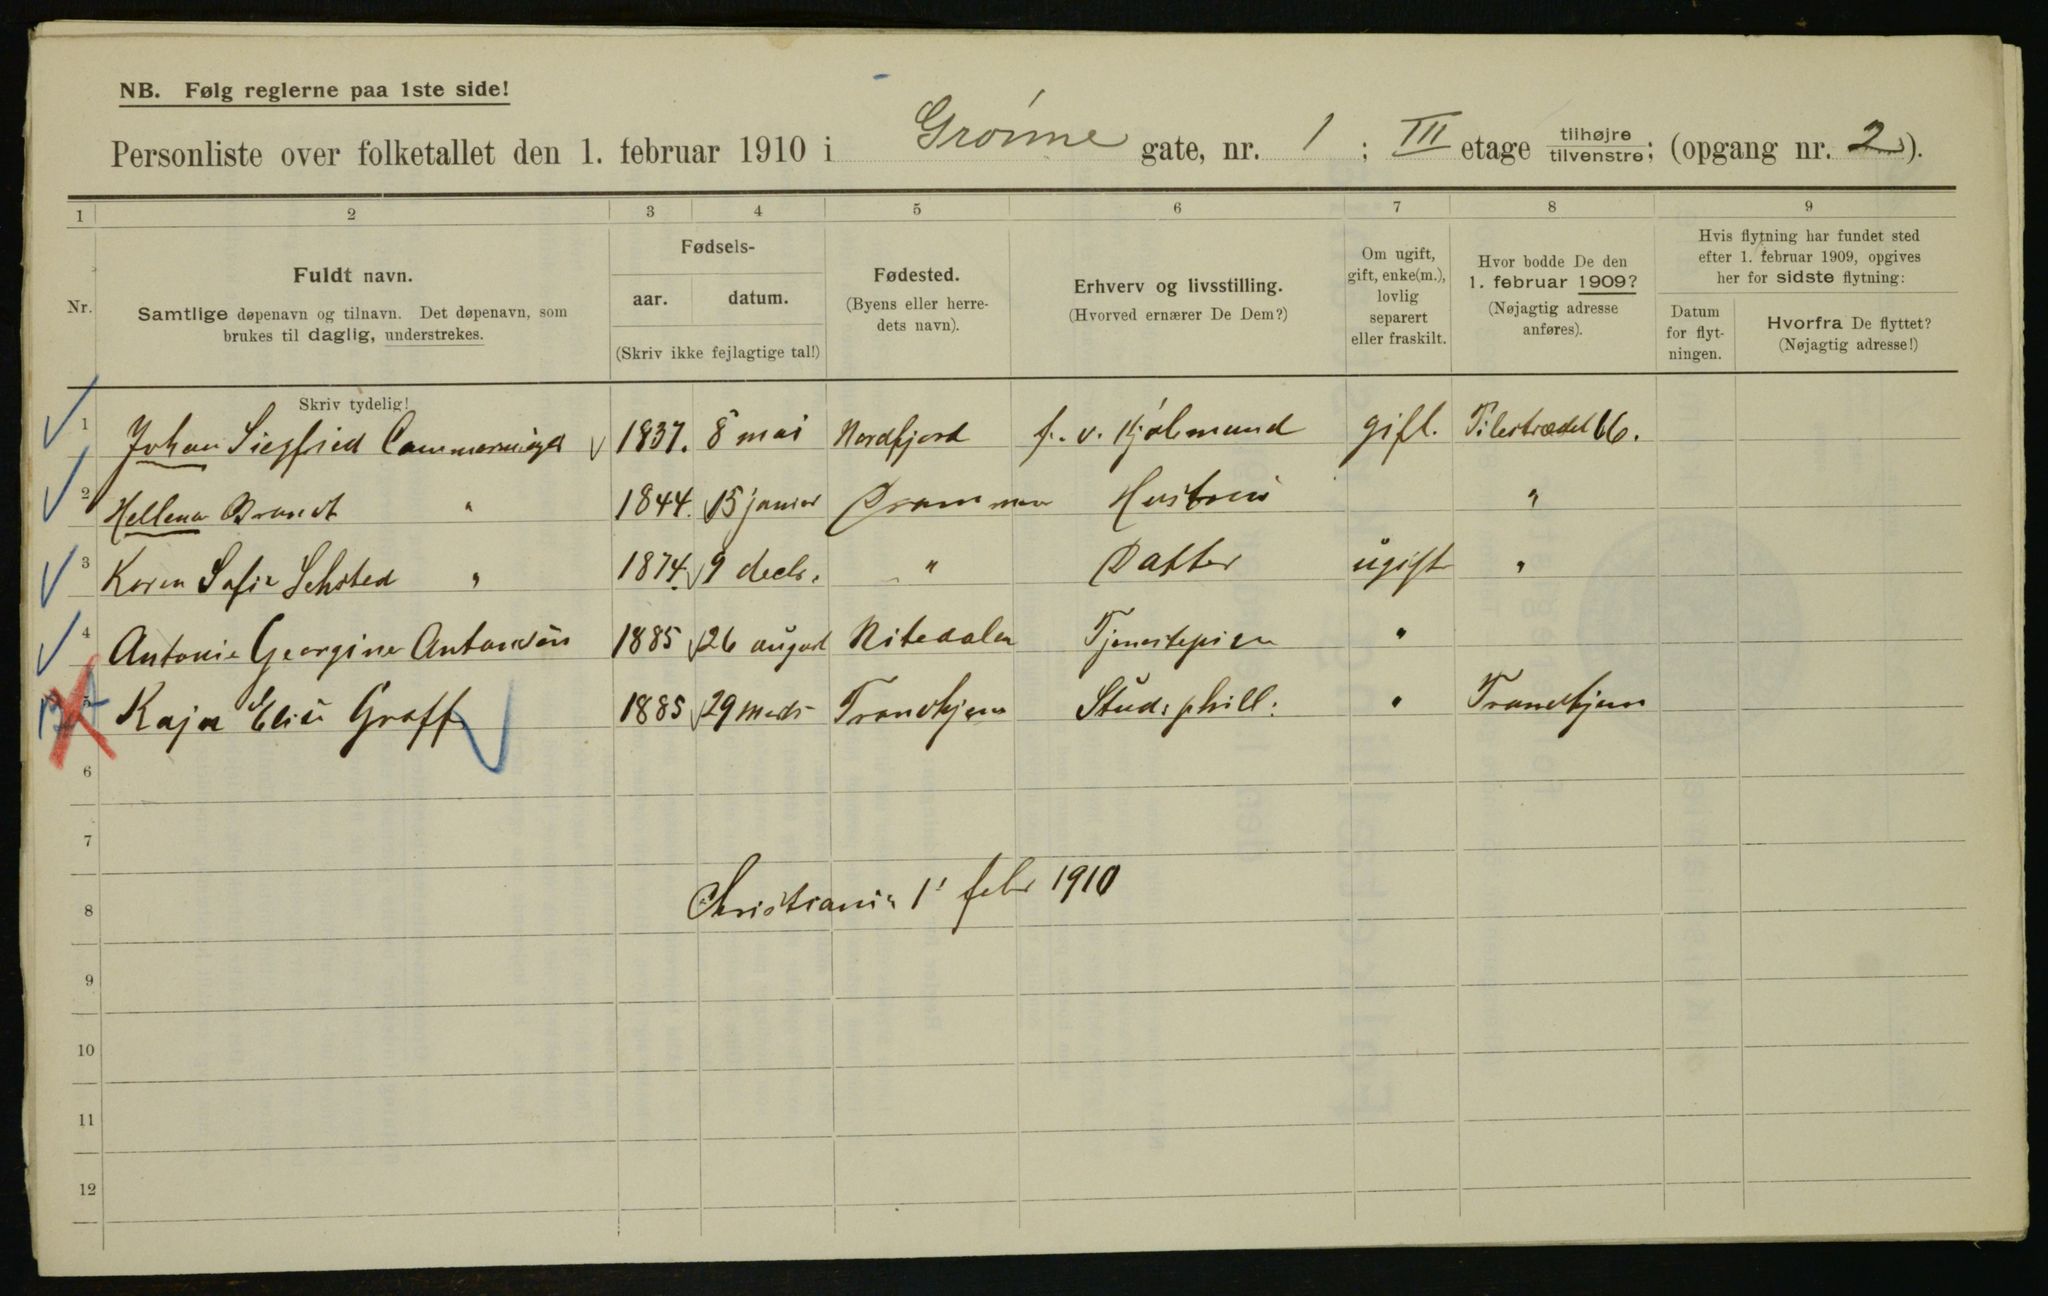 NB. Følg reglerne paa 1ste side!
Personliste over folketallet den 1. februar 1910 i Grønne gate, nr. 1 ; III etage tilhøjre tilvenstre; (opgang nr. 2).
1 2 3 4 5 6 7 8 9
Nr.
Fuldt navn.
Samtlige døpenavn og tilnavn. Det døpenavn, som
brukes til daglig, understrekes.
Skriv tydelig!
Fødsels-
aar. datum.
(Skriv ikke fejlagtige tal!)
Fødested.
(Byens eller herre-
dets navn).
Erhverv og livsstilling.
(Hvorved ernærer De Dem?)
Om ugift,
gift, enke(m.),
lovlig
separert
eller fraskilt.
Hvor bodde De den
1. februar 1909?
(Nøjagtig adresse
anføres).
Hvis flytning har fundet sted
efter 1. februar 1909, opgives
her for sidste flytning:
Datum
for flyt-
ningen.
Hvorfra De flyttet?
(Nøjagtig adresse!)
1 Johan Siegfried 1837. 8 mai Nordfjord f. v. Kjøbmand gift. Pilestrædet 66.
2 Hellena Brandt " 1844. 15 januar Drammen Hustru "
3 Karen Sofie Sehsted " 1874 9 decb. " Datter ugift "
4 Antonie Georgine Antonsen 1885 26 august Nitedalen Tjenestepige "
5 Kaja Elise Graff 1885 29 Trondhjem Stud: phill: " Trondhjem
6
7
8
Christiania 1' febr 1910
9
10
11
12